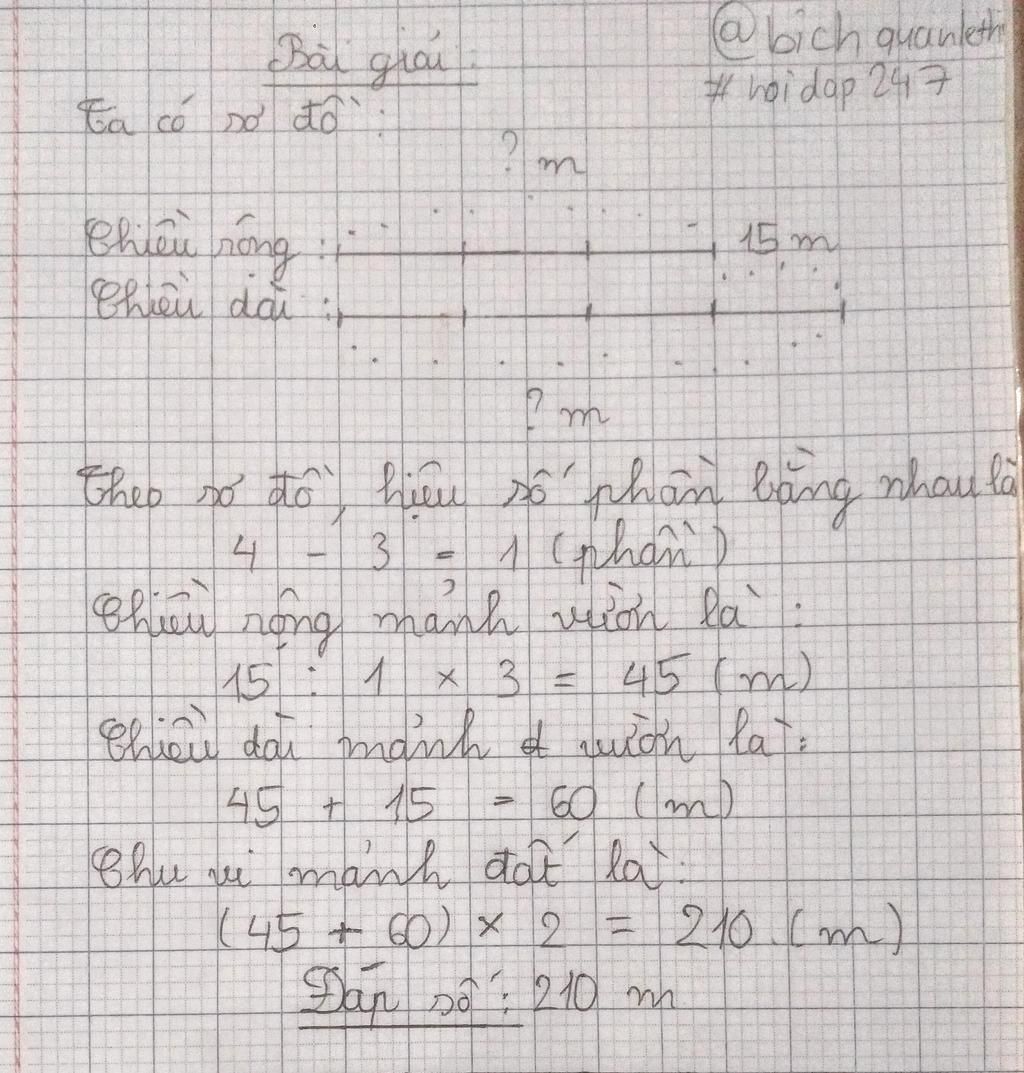 Bài giải:
@bichquanleth
#hoidap247
Ta có sơ đồ:
? m
Chiều rộng: 15 m
Chiều dài:
? m
Theo sơ đồ, hiệu số phần bằng nhau là
4 - 3 = 1 (phần)
Chiều rộng mảnh vườn là:
15 : 1 x 3 = 45 (m)
Chiều dài mảnh vườn là:
45 + 15 = 60 (m)
Chu vi mảnh đất là:
(45 + 60) x 2 = 210 (m)
Đáp số: 210 m